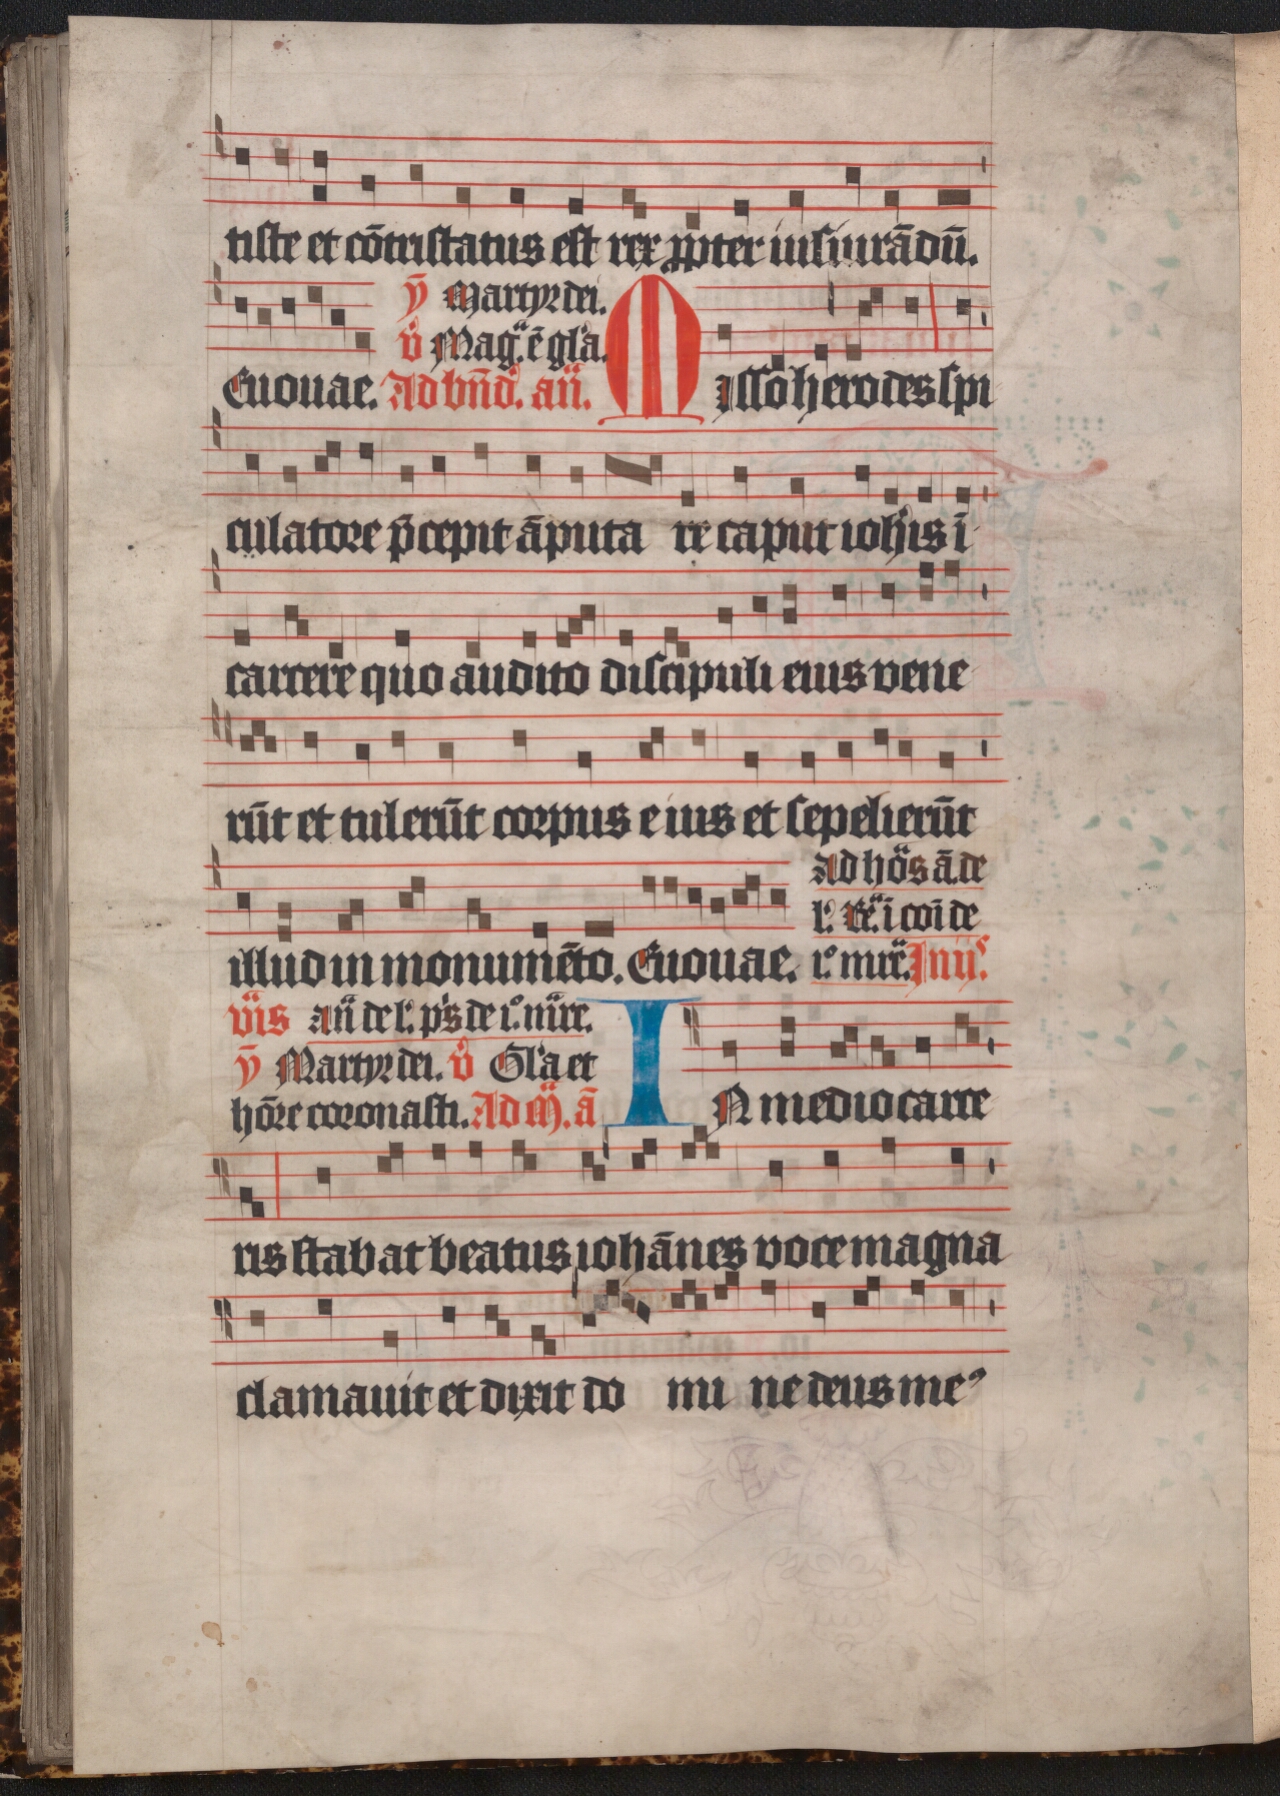 tiste et cōtristatus est rex ꝓpter iusiurādū.
v̄ Martyr dei.
v̊ Mag.ª ē gl'a.
Euouae. Ad bn̄d. an̄.
Misso herode spi
culatore p̄cepit āputa re caput ioh'is ī
carcere quo audito discipuli eius vene
rūt et tulerūt corpus eius et sepelierūt
ad hōs ā. de
l'. i coī de
illud in monumēto. Euouae. i.º mrē. In ij.
v̄is an̄ de l'. p's de i.º mr̄e.
v̄ Martyr dei. v̊ Gl'a et
hōre coronasti. Ad M̄. ā
IN medio carce
ris stabat beatus iohānes voce magna
clamauit et dixit do mi ne deus meꝰ